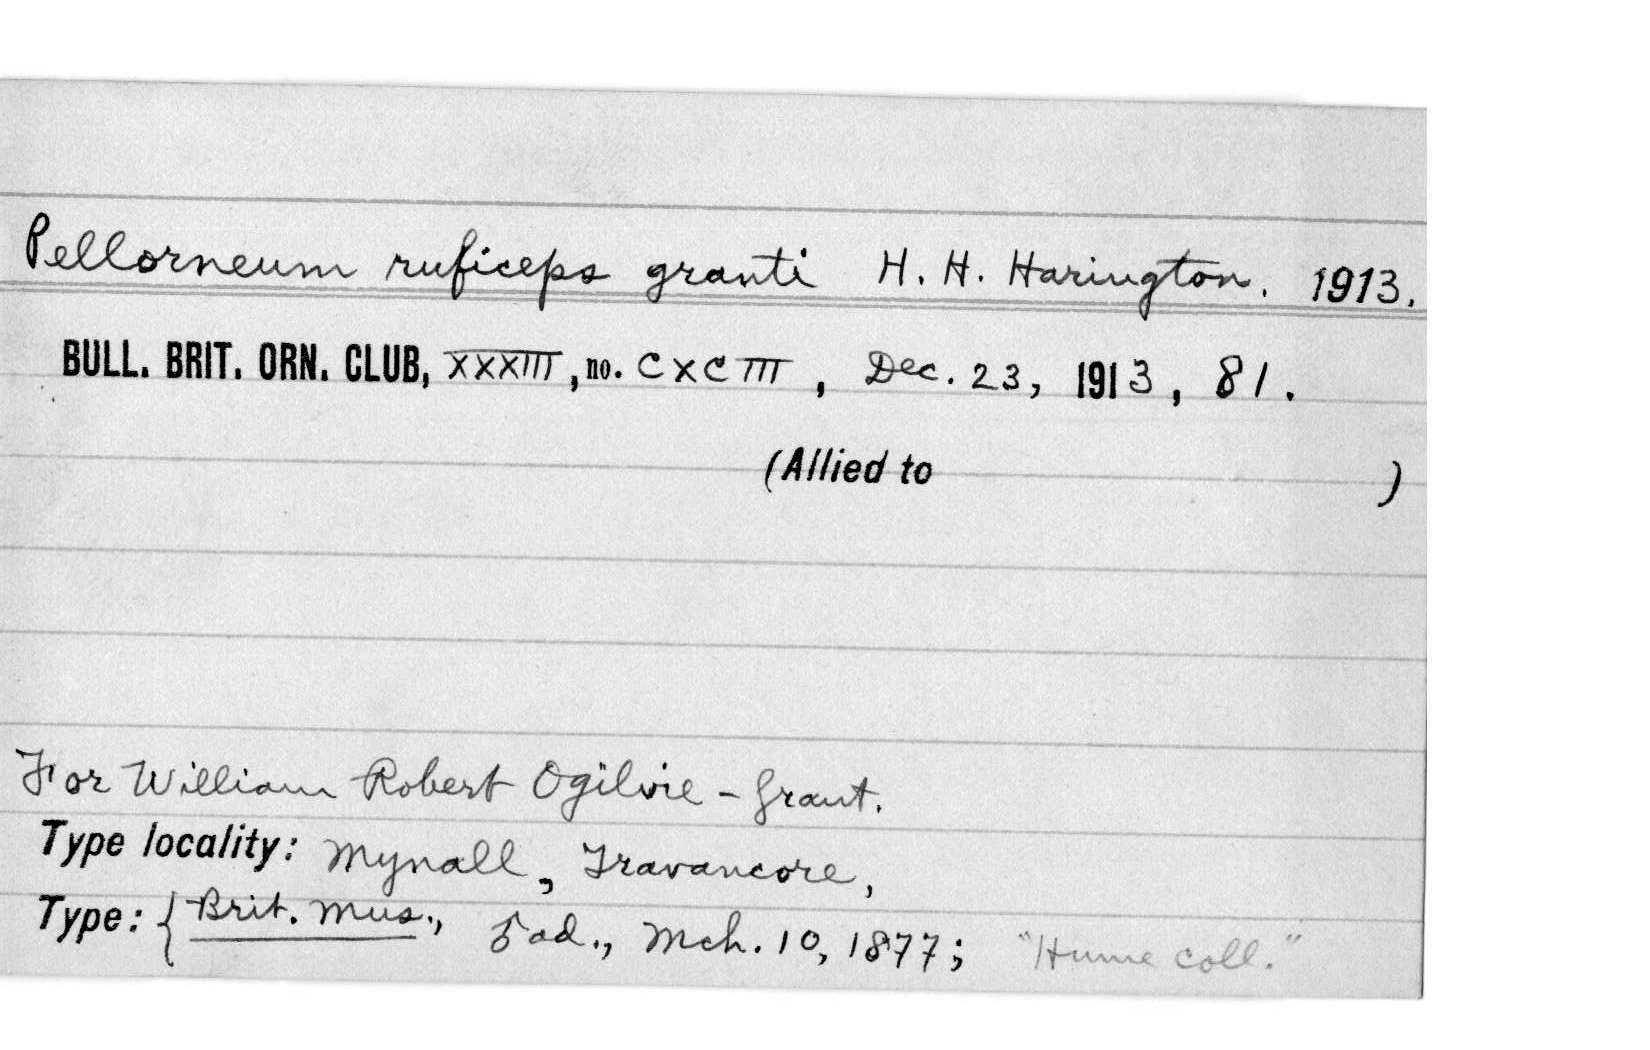 Pellorneum ruficeps granti H. H. Harington. 1913.
BULL. BRIT. ORN. CLUB, XXXIII, no. CXCIII, Dec. 23, 1913, 81.
(Allied to )
For William Robert Ogilvie-Grant.
Type locality: Mynall, Travancore,
Type: { Brit. Mus., ad., Mch. 10, 1877; "Hume coll."